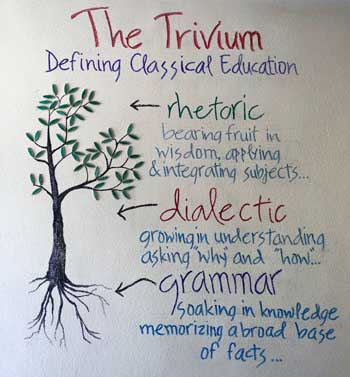 The Trivium
Defining Classical Education
rhetoric
bearing fruit in
wisdom, applying
& integrating subjects...
dialectic
growing in understanding
asking "why" and "how"...
grammar
soaking in knowledge
memorizing a broad base
of facts...